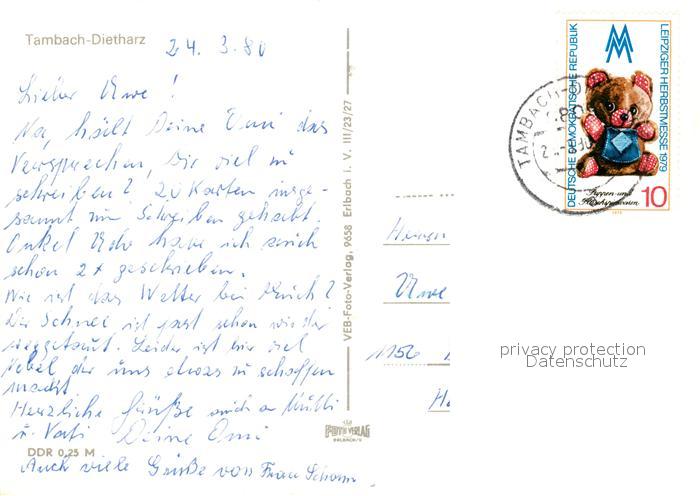 Tambach-Dietharz
24. 3. 80
Lieber Uwe!
Na, hält Deine Omi das
Versprechen, Dir viel zu
schreiben? 20 Karten insge-
samt zum Schreiben gehabt.
Onkel Udo habe ich auch
schon 2x geschrieben.
Wie ist das Wetter bei Euch?
Der Schnee ist fast schon wieder
weggetaut. Leider ist hier viel
Nebel der uns etwas zu schaffen
macht.
Herzliche Grüße auch an Mutti
u. Vati Deine Omi
DDR 0,25 M
Auch viele Grüße von Frau
VEB-Foto-Verlag, 9658 Erlbach i. V. III/23/27
FOTO VERLAG
ERLBACH/V
DEUTSCHE DEMOKRATISCHE REPUBLIK
LEIPZIGER HERBSTMESSE 1979
Puppen- und
10
1979
TAMBACH-D
Herrn
Uwe
1156
privacy protection
Datenschutz